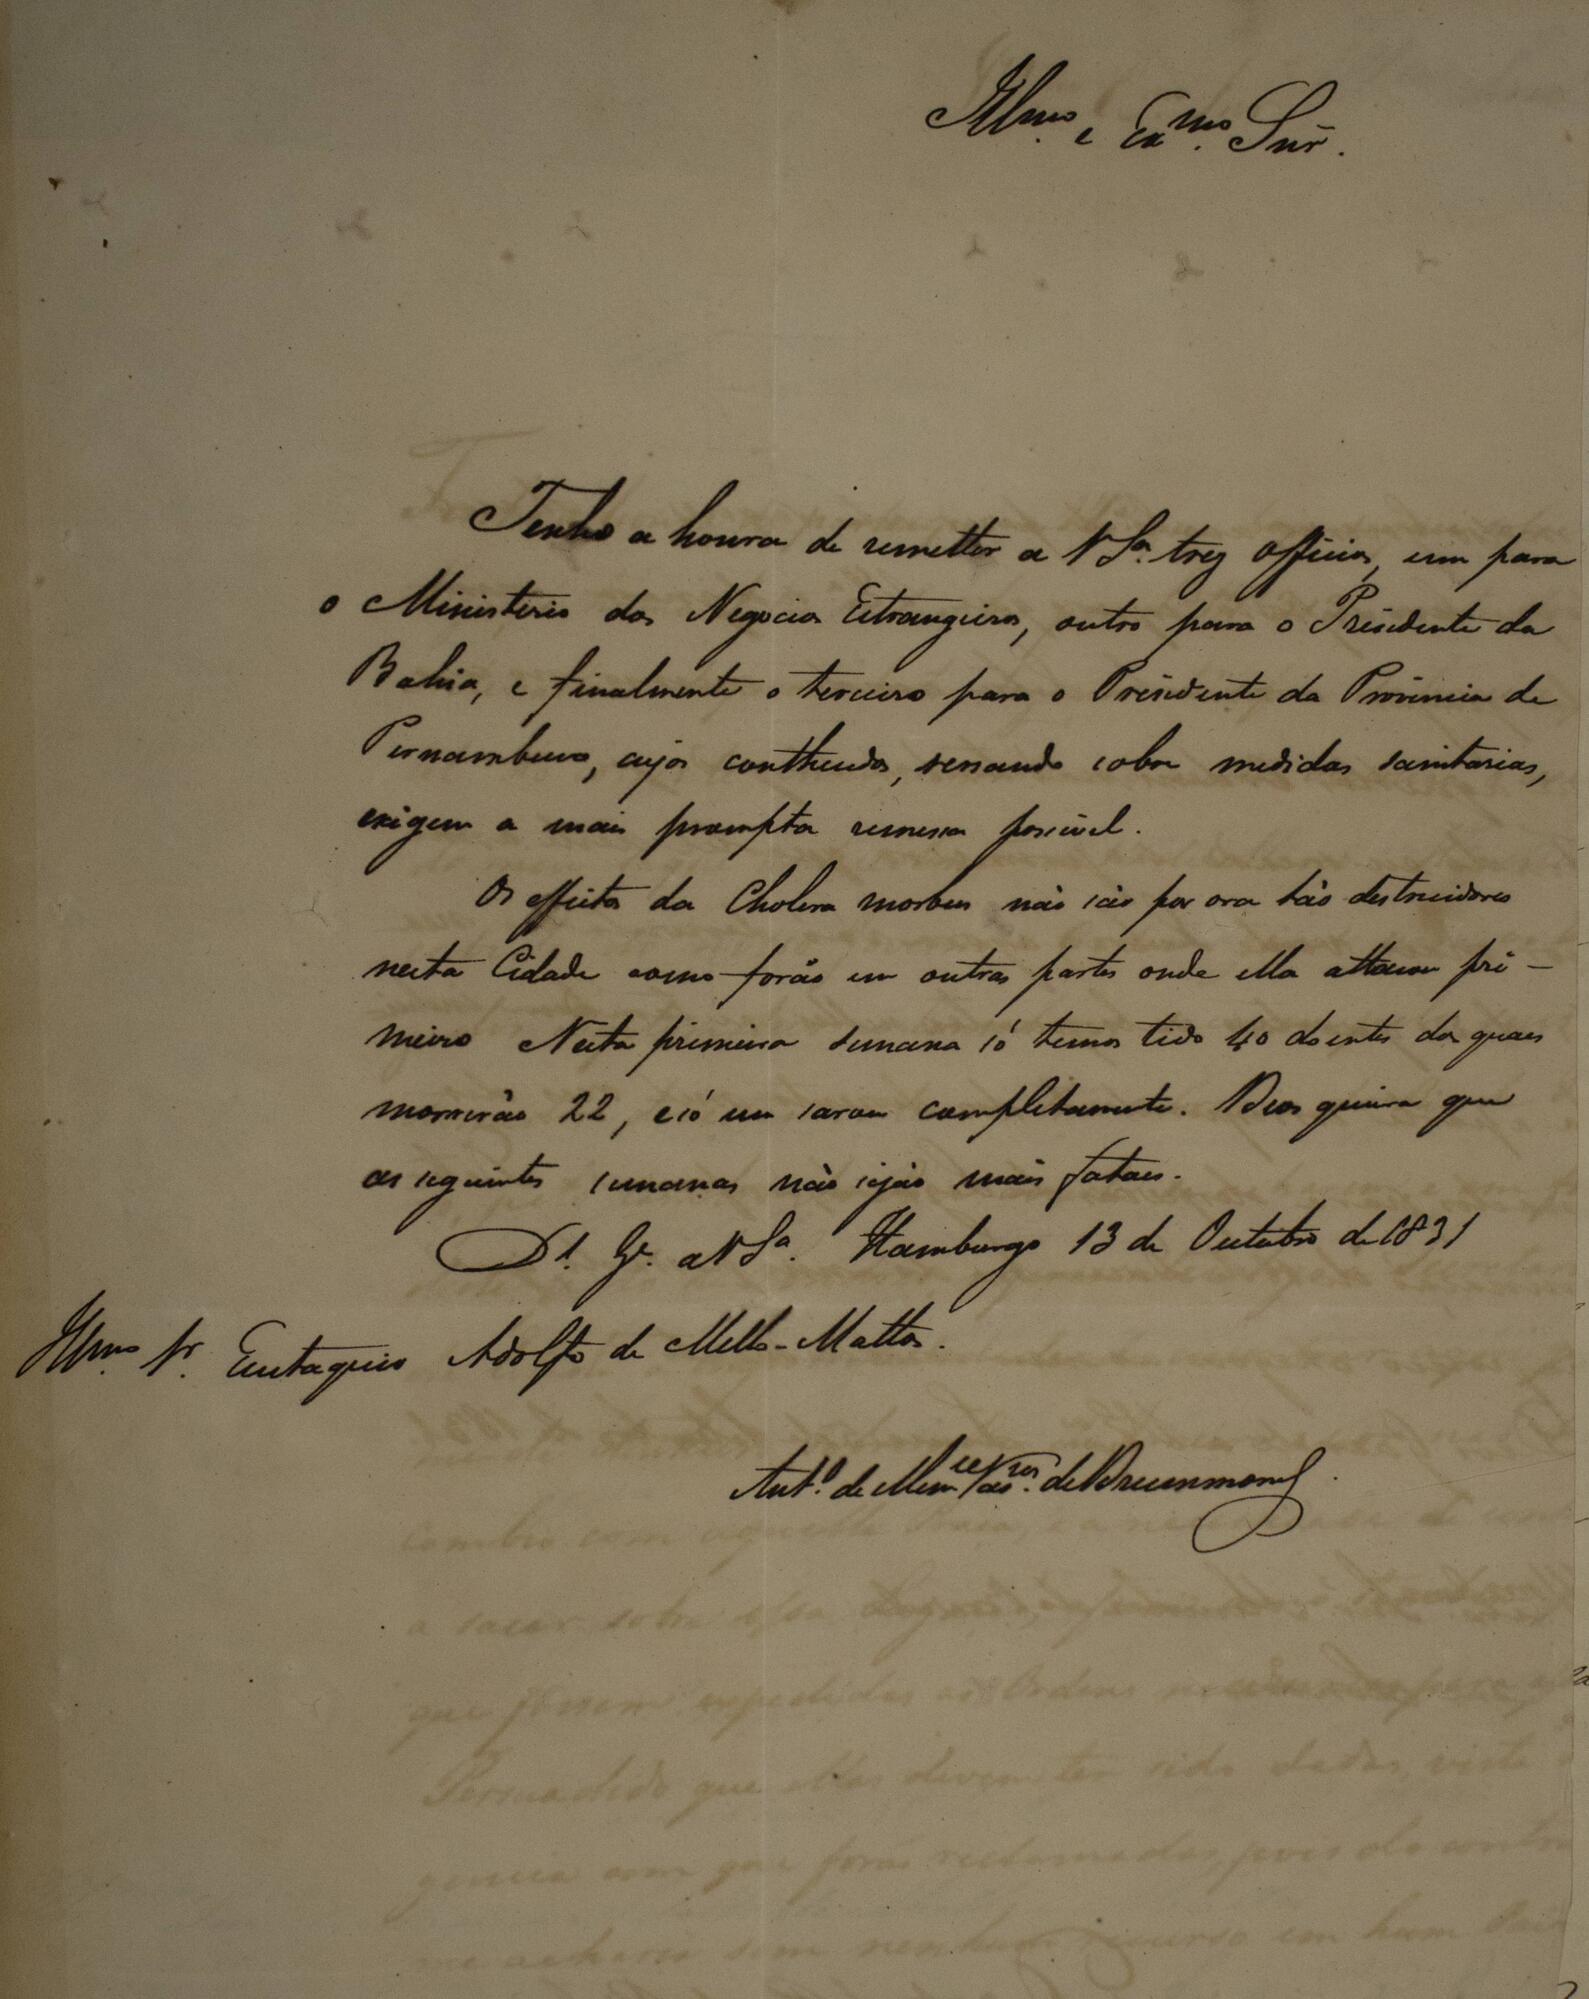 Illmo. e Exmo. Snr.
Tenho a honra de remetter a V Sa. trez officios, um para
o Ministerio dos Negocios Estrangeiros, outro para o Presidente da
Bahia, e finalmente o terceiro para o Presidente da Provincia de
Pernambuco, cujos contheudos, versando sobre medidas sanitarias,
exigem a mais prompta remessa possivel.
Os effeitos da Cholera morbus não são por ora tão destruidores
nesta Cidade como forão em outras partes onde ella attacou pri-
meiro Nesta primeira semana só temos tido 40 doentes dos quaes
morrerão 22, e só um sarou completamente. Deos queira que
as seguintes semanas não sejão mais fataes.
Ds. Ge. a V Sa. Hamburgo 13 de Outubro de 1831
Illmo. Sr. Eustaquio Adolfo de Mello-Mattos.
Anto. de Mences Vasos. de Drummond.